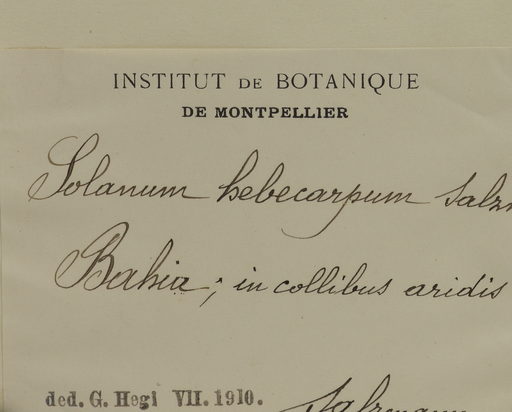 INSTITUT DE BOTANIQUE
DE MONTPELLIER
Solanum hebecarpum Salzm
Bahia; in collibus aridis
ded. G. Hegi VII. 1910.
Salzmann